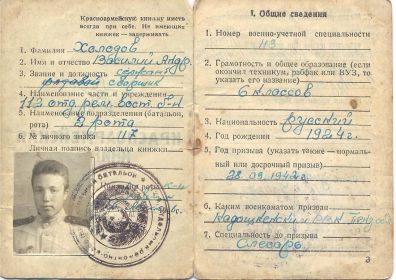 Красноармейскую книжку иметь
всегда при себе. Не имеющих
книжек — задерживать.
1. Фамилия Холодов
2. Имя и отчество Василий Андр.
3. Звание и должность сержант
сварщик
4. Наименование части и учреждения
113 отд. рем. вост. б-н
5. Наименование подразделения (батальон,
рота) рота
6. № личного знака 117
Личная подпись владельца книжки
I. Общие сведения
1. Номер военно-учетной специальности
113
2. Грамотность и общее образование (если
окончил техникум, рабфак или ВУЗ, то
указать его название)
6 классов
3. Национальность русский
4. Год рождения 1924 г.
5. Год призыва (также — нормаль-
ный или досрочный призыв)
28.09.1942 г.
6. Каким военкоматом призван
РВК
7. Специальность до призыва
Слесарь
3